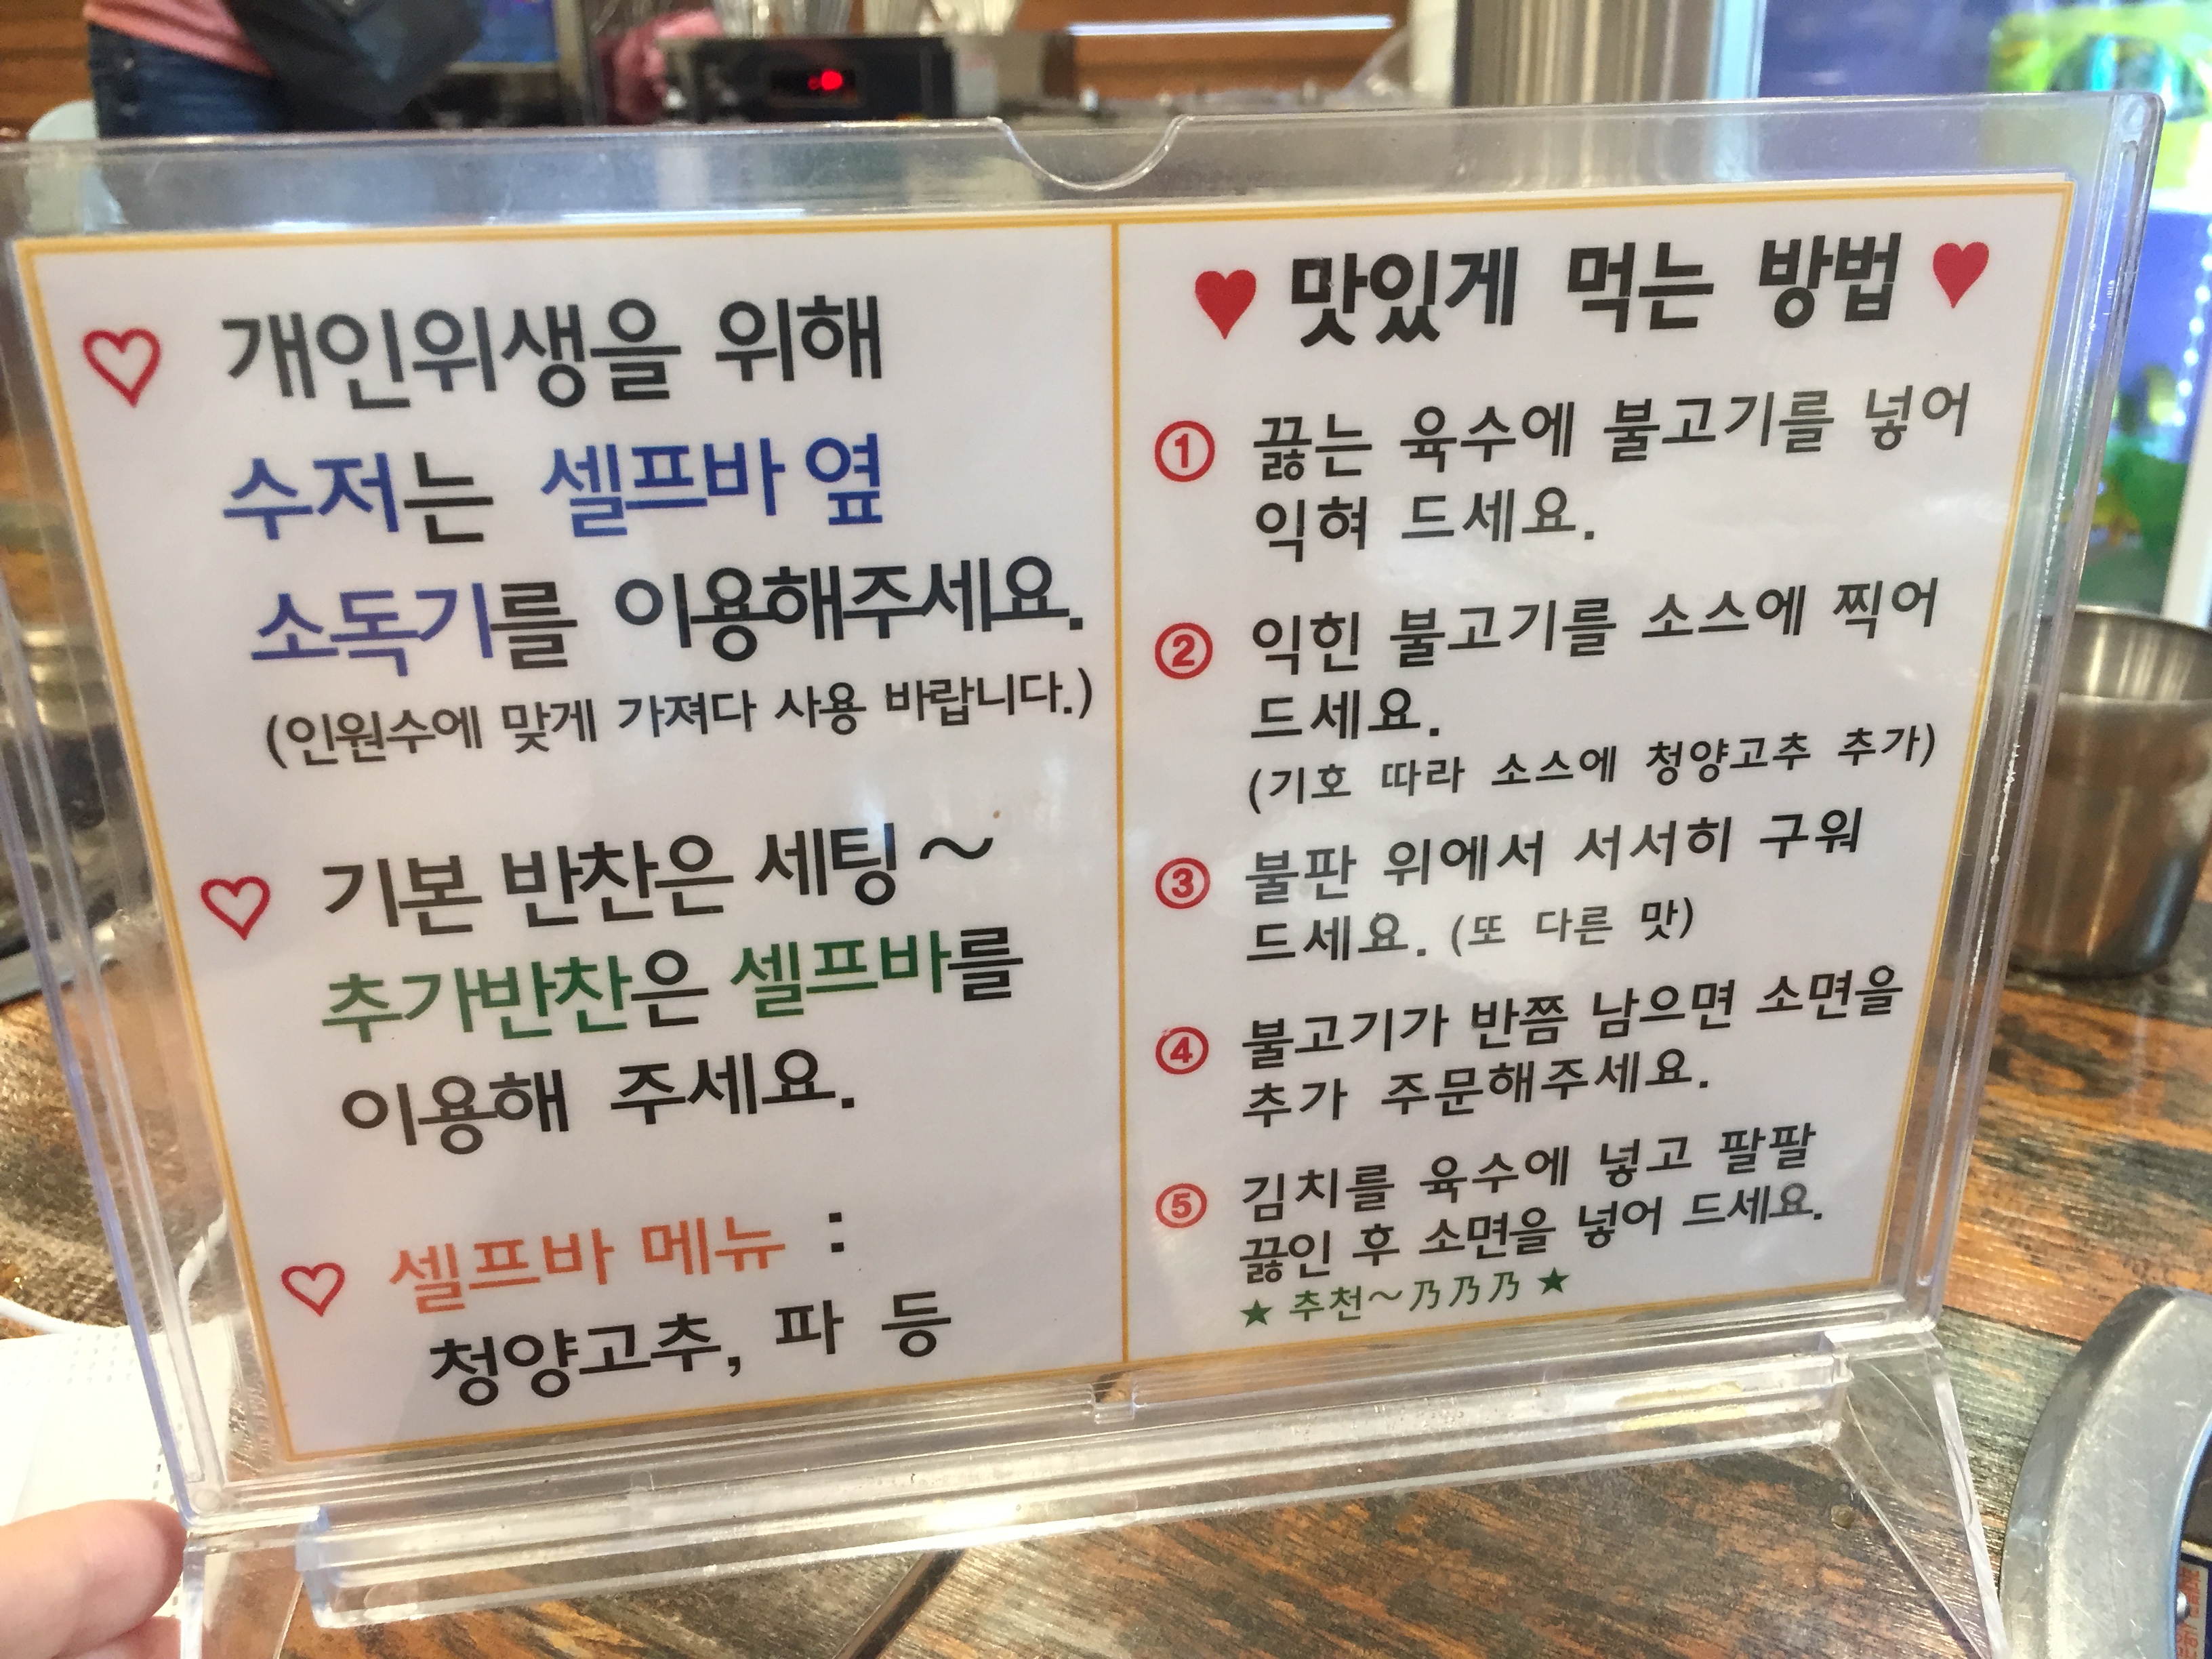 ♡ 개인위생을 위해
수저는 셀프바 옆
소독기를 이용해주세요.
(인원수에 맞게 가져다 사용 바랍니다.)
♡ 기본 반찬은 세팅~
추가반찬은 셀프바를
이용해 주세요.
♡ 셀프바 메뉴 :
청양고추, 파 등
♥ 맛있게 먹는 방법 ♥
① 끓는 육수에 불고기를 넣어
익혀 드세요.
② 익힌 불고기를 소스에 찍어
드세요.
(기호 따라 소스에 청양고추 추가)
③ 불판 위에서 서서히 구워
드세요. (또 다른 맛)
④ 불고기가 반쯤 남으면 소면을
추가 주문해주세요.
⑤ 김치를 육수에 넣고 팔팔
끓인 후 소면을 넣어 드세요.
★ 추천~乃乃乃 ★